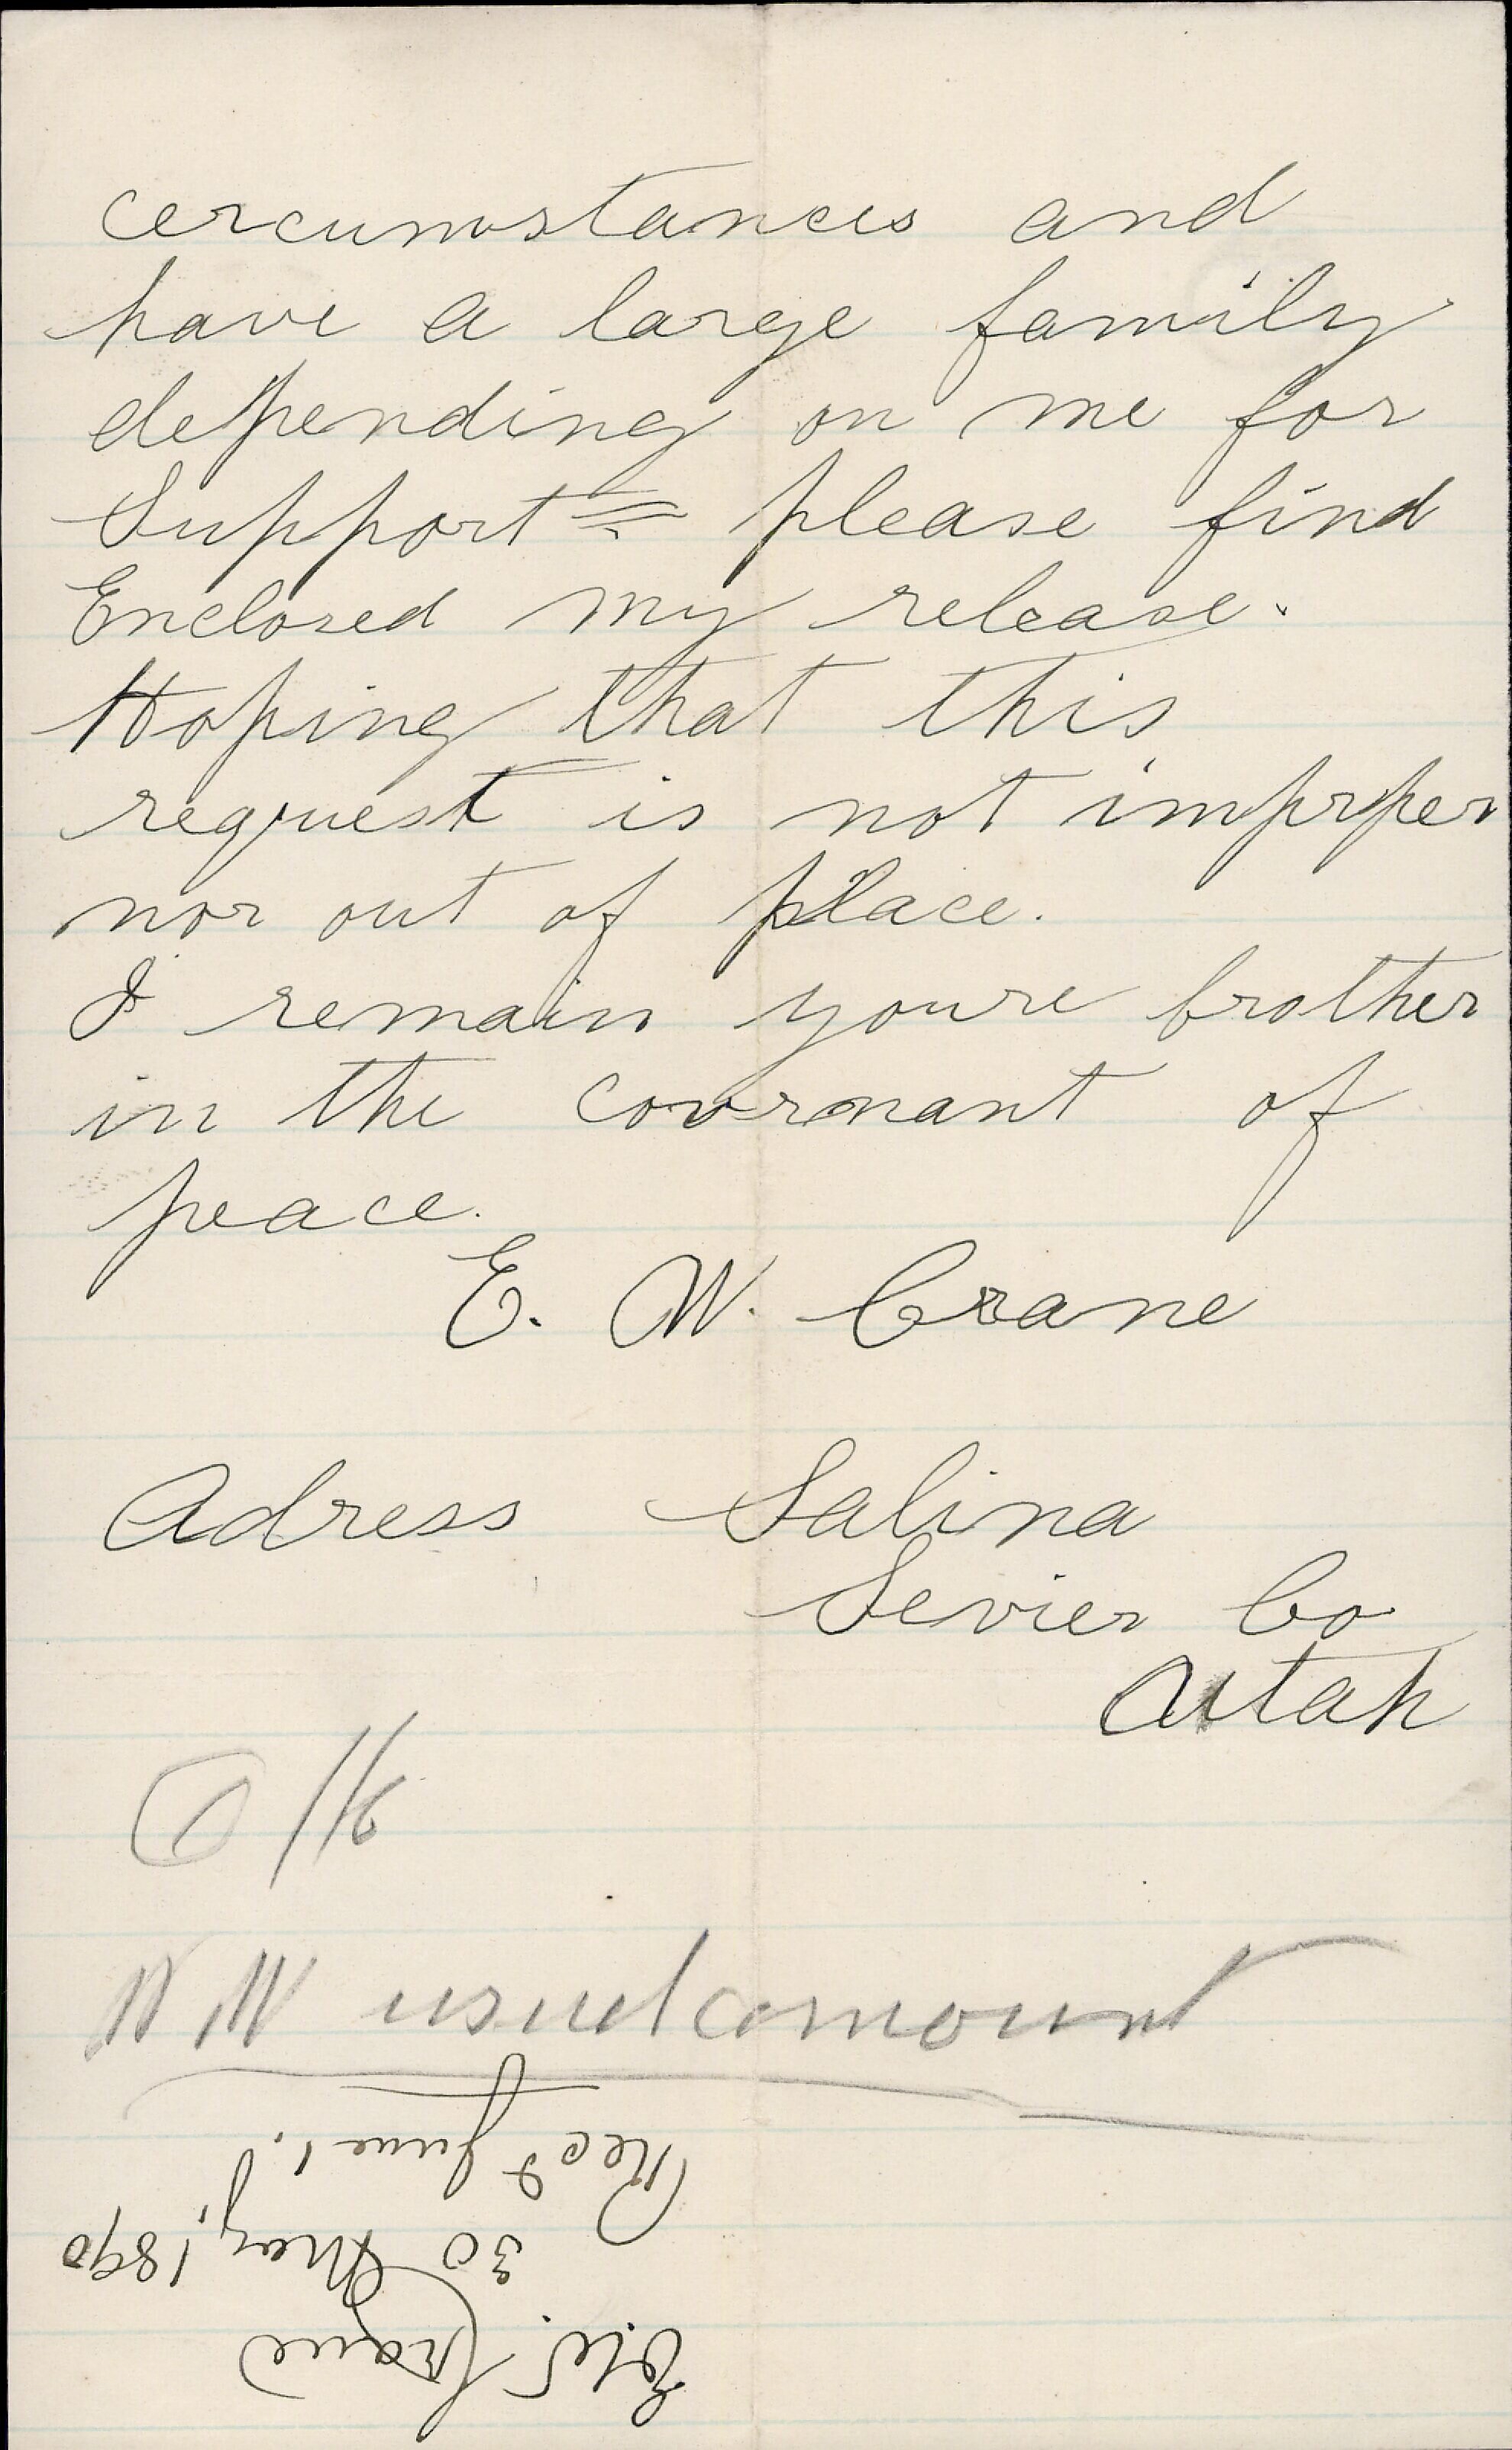 cercumstances and
have a large family
depending on me for
Support = please find
Enclosed my release.
Hoping that this
request is not imprper
nor out of place.
I remain youre brother
in the covernant of
peace.
E. W. Crane
Adress Salina
Sevier Co
Utah
W W usual amount
E.W. Crane
30 May, 1890
Recd June 1.